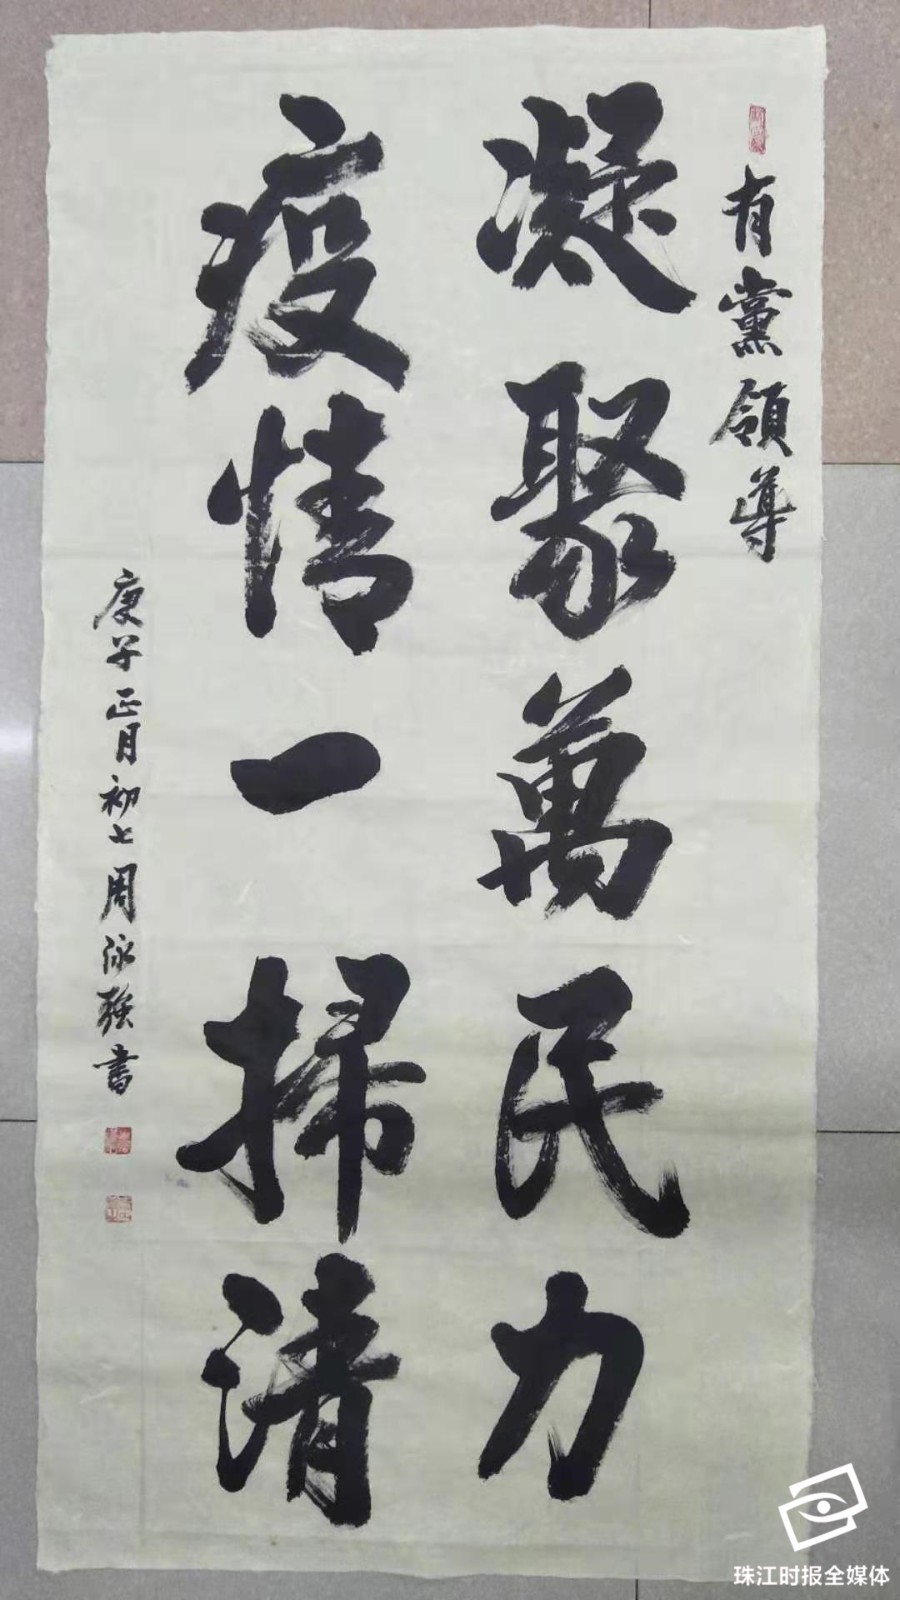 有黨領導
凝聚萬民力
疫情一掃清
庚子正月初七周泳強書
珠江时报全媒体